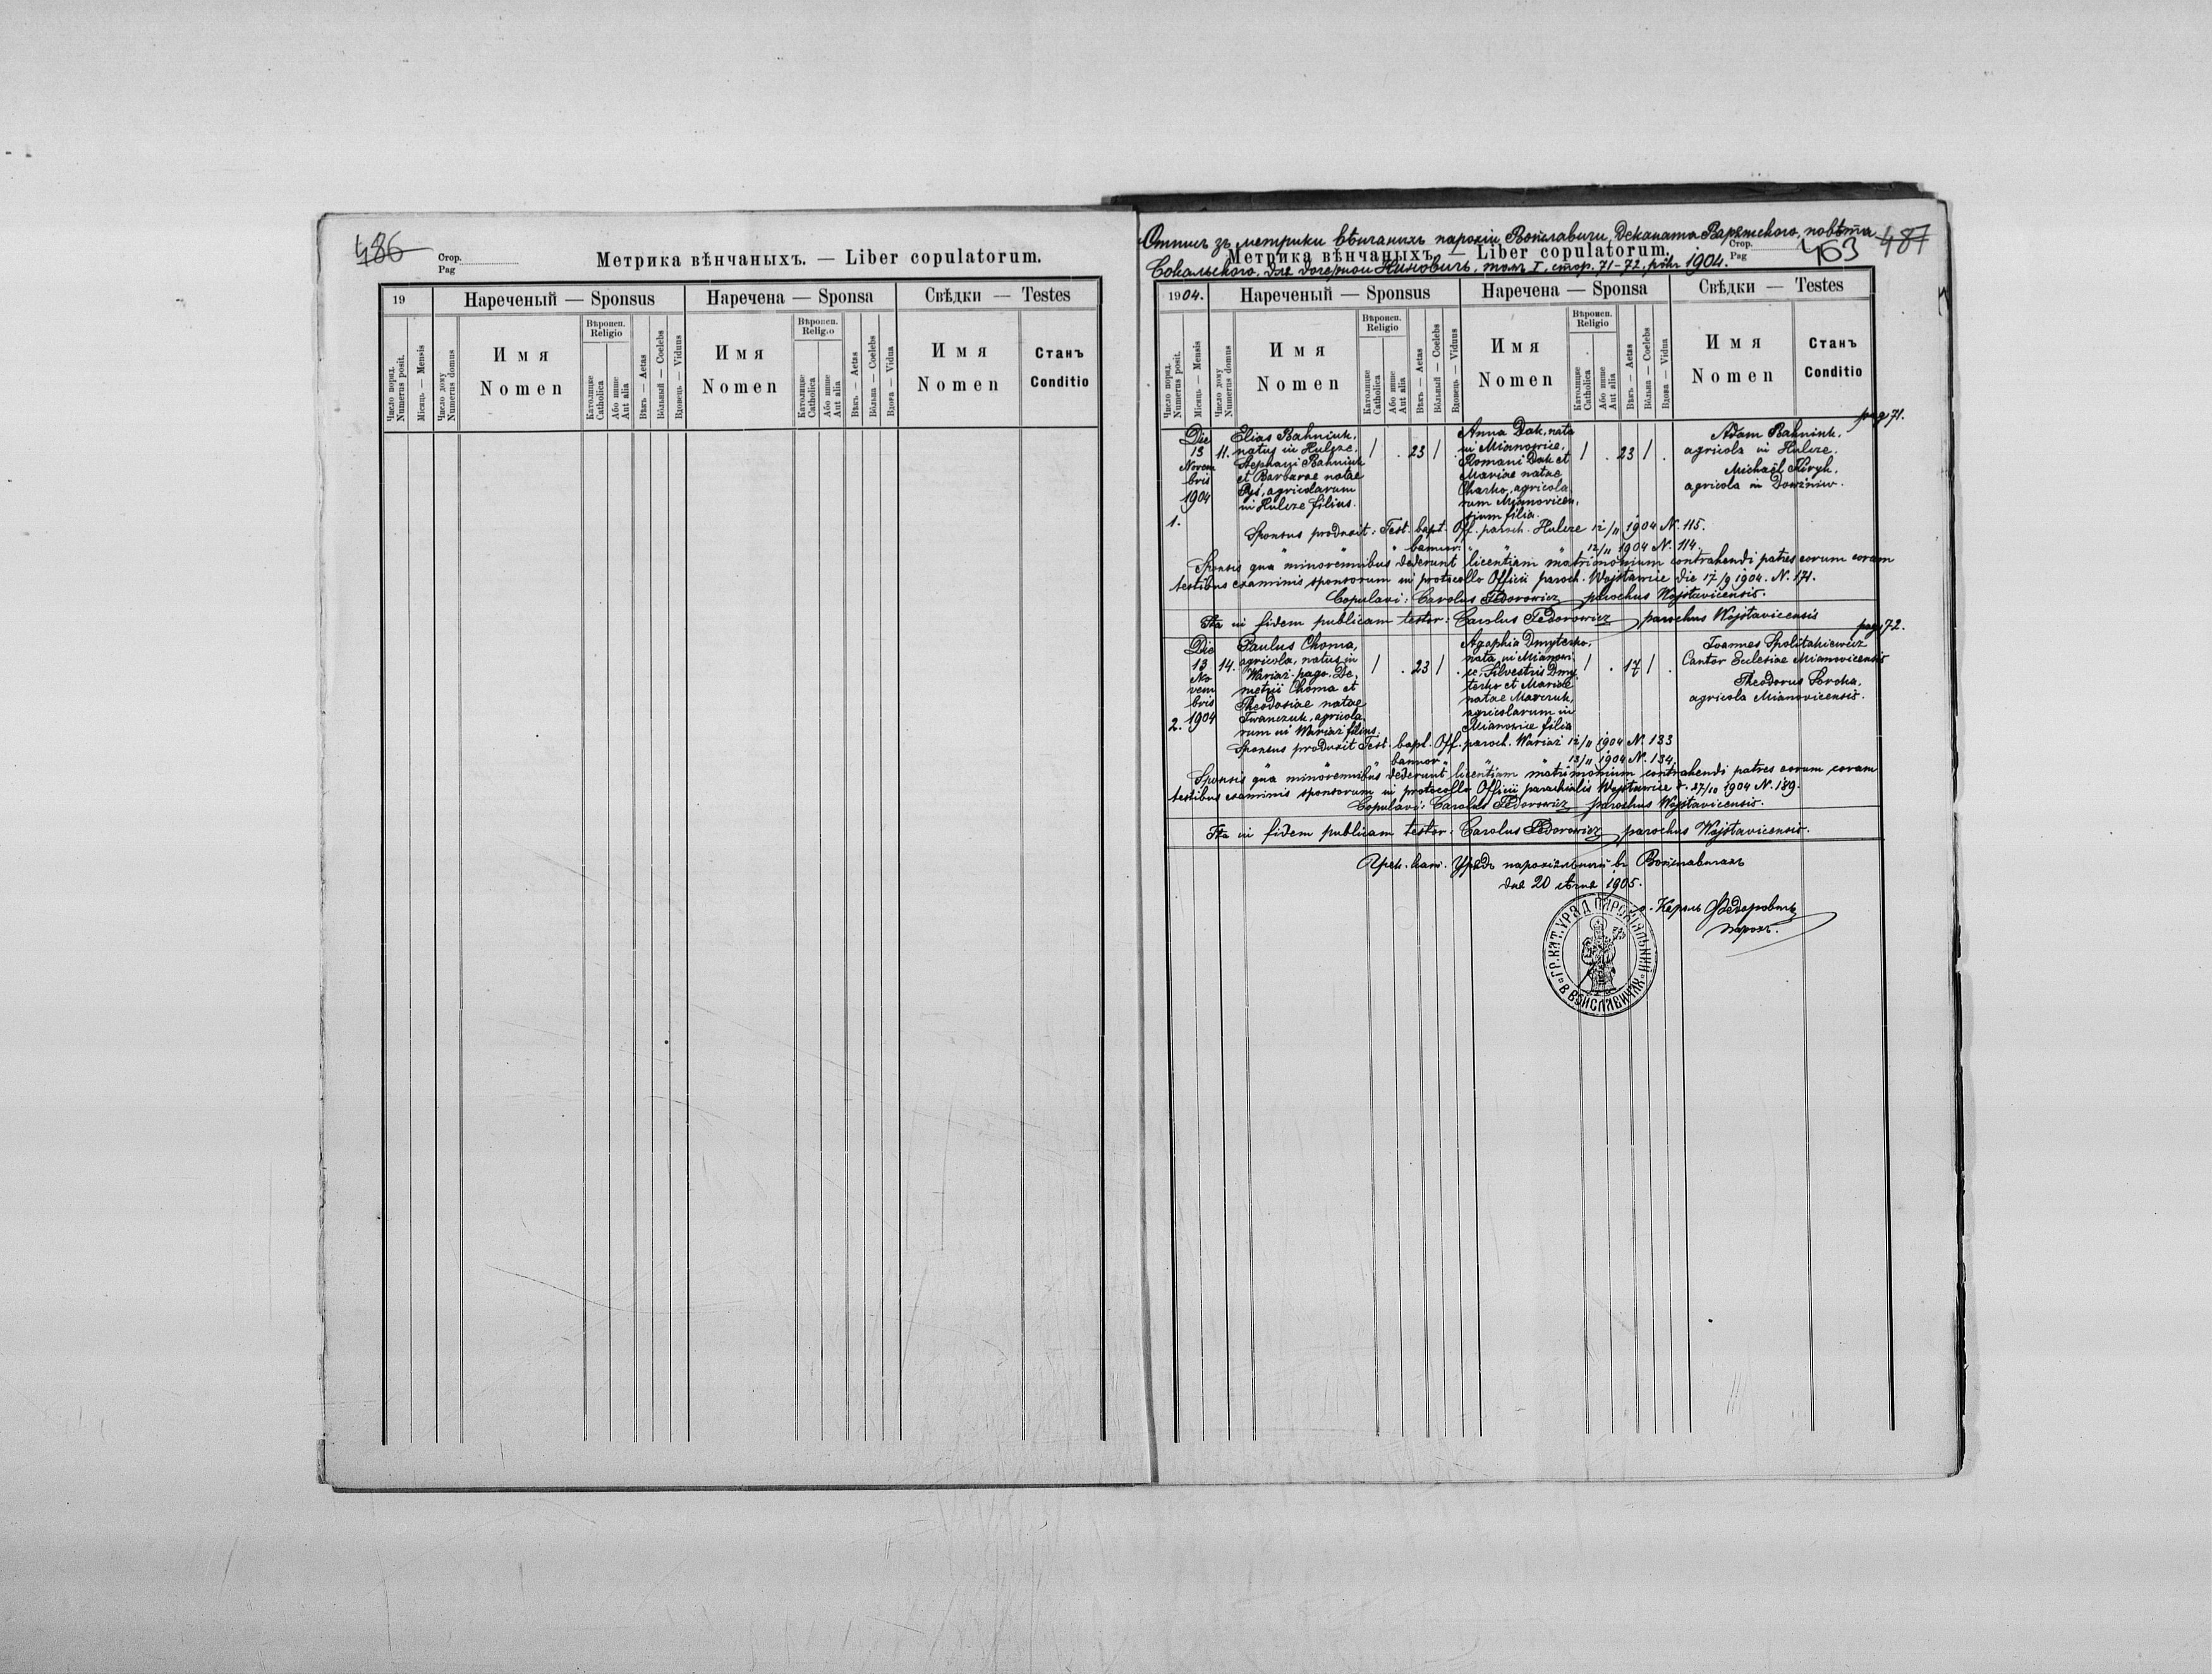 486
Стор.
Pag
Метрика вѣнчаныхъ. — Liber copulatorum.
19
Нареченый — Sponsus
Наречена — Sponsa
Свѣдки — Testes
Число поряд. Numerus posit.
Місяць — Mensis
Число дому Numerus domus
Имя Nomen
Вѣроисп. Religio
Католицке Catholica
Або инше Aut alia
Вѣкъ — Aetas
Вôльный — Coelebs
Вдовець — Viduus
Имя Nomen
Вѣроисп. Religio
Католицке Catholica
Або инше Aut alia
Вѣкъ — Aetas
Вôльна — Coelebs
Вдова — Vidua
Имя Nomen
Станъ Conditio
Отпись зъ метрики вѣнчаныхъ парохіи Войславичи, Деканата Варяжского, повѣта
487
463
Стор.
Pag
Метрика вѣнчаныхъ. — Liber copulatorum.
Сокальского, для дочерной Миновичѣ, томъ I, стор. 71-72, рôкъ 1904.
1904.
Нареченый — Sponsus
Наречена — Sponsa
Свѣдки — Testes
Число поряд. Numerus posit.
Місяць — Mensis
Число дому Numerus domus
Имя Nomen
Вѣроисп. Religio
Католицке Catholica
Або инше Aut alia
Вѣкъ — Aetas
Вôльный — Coelebs
Вдовець — Viduus
Имя Nomen
Вѣроисп. Religio
Католицке Catholica
Або инше Aut alia
Вѣкъ — Aetas
Вôльна — Coelebs
Вдова — Vidua
Имя Nomen
Станъ Conditio
pag 71.
1.
Die
13
Novem
bris
1904
11.
Elias Bahniuk,
natus in Hulcze.
Stephani Bahniuk
et Barbarae natae
Pyś, agricolarum
in Hulcze filius.
/ . 23 / .
Anna Dak, nata
in Mianowice,
Romani Dak et
Mariae natae
Charko, agricola
rum Mianovicen,
sium filia.
/ . 23 / .
Adam Bahniuk.
agricola in Hulcze.
Michaël Koryk.
agricola in Dowżniw.
Sponsus produxit: Test. bapt. Off. paroch. Hulcze 12/11 1904 N. 115.
" " " bannor. " " 12/11 1904 N. 114.
Sponsis qua minorennibus dederunt licentiam matrimonium contrahendi patres eorum coram
testibus examinis sponsorum in protocollo Officii paroch. Wojsławice die 17/9 1904. N. 171.
Copulavi: Carolus Fedorowicz parochus Wojsłavicensis.
Ita in fidem publicam testor: Carolus Fedorowicz parochus Wojsłavicensis
pag 72.
2.
Die
13
No
vem
bris
1904
14.
Paulus Choma,
agricola, natus in
Wariaż-pago. De,
metrii Choma et
Theodosiae natae
Iwanczuk, agricola
rum in Wariaż filius.
/ . 23 / .
Agaphia Dmyterko,
nata in Mianowi
ce, Silvestris Dmy
terko et Mariae
natae Mazczuk,
agricolarum in
Mianowice filia
/ . 17 / .
Joannes Spolitakiewicz
Cantor Eclesiae Mianovicensis
Theodorus Soroka,
agricola Mianovicensis.
Sponsus produxit Test. bapt. Off. paroch. Wariaż 12/11 1904 N. 133
" " " bannor " " 13/11 1904 N. 134.
Sponsis qua minorennibus dederunt licentiam matrimonium contrahendi patres eorum coram
testibus examinis sponsorum in protocollo Officii parochialis Wojsławice d. 27/10 1904 N. 189.
Copulavi: Carolus Fedorowicz parochus Wojsłavicensis.
Ita in fidem publicam testor: Carolus Fedorowicz parochus Wojsłavicensis.
Грек. кат. Урядъ парохіяльный въ Войславичахъ
дня 20 сѣчня 1905.
о. Кароль Федоровичъ
парохъ.
ГР. КАТ. УРЯД ПАРОХІЯЛЬНИЙ В ВОЙСЛАВИЧАХ